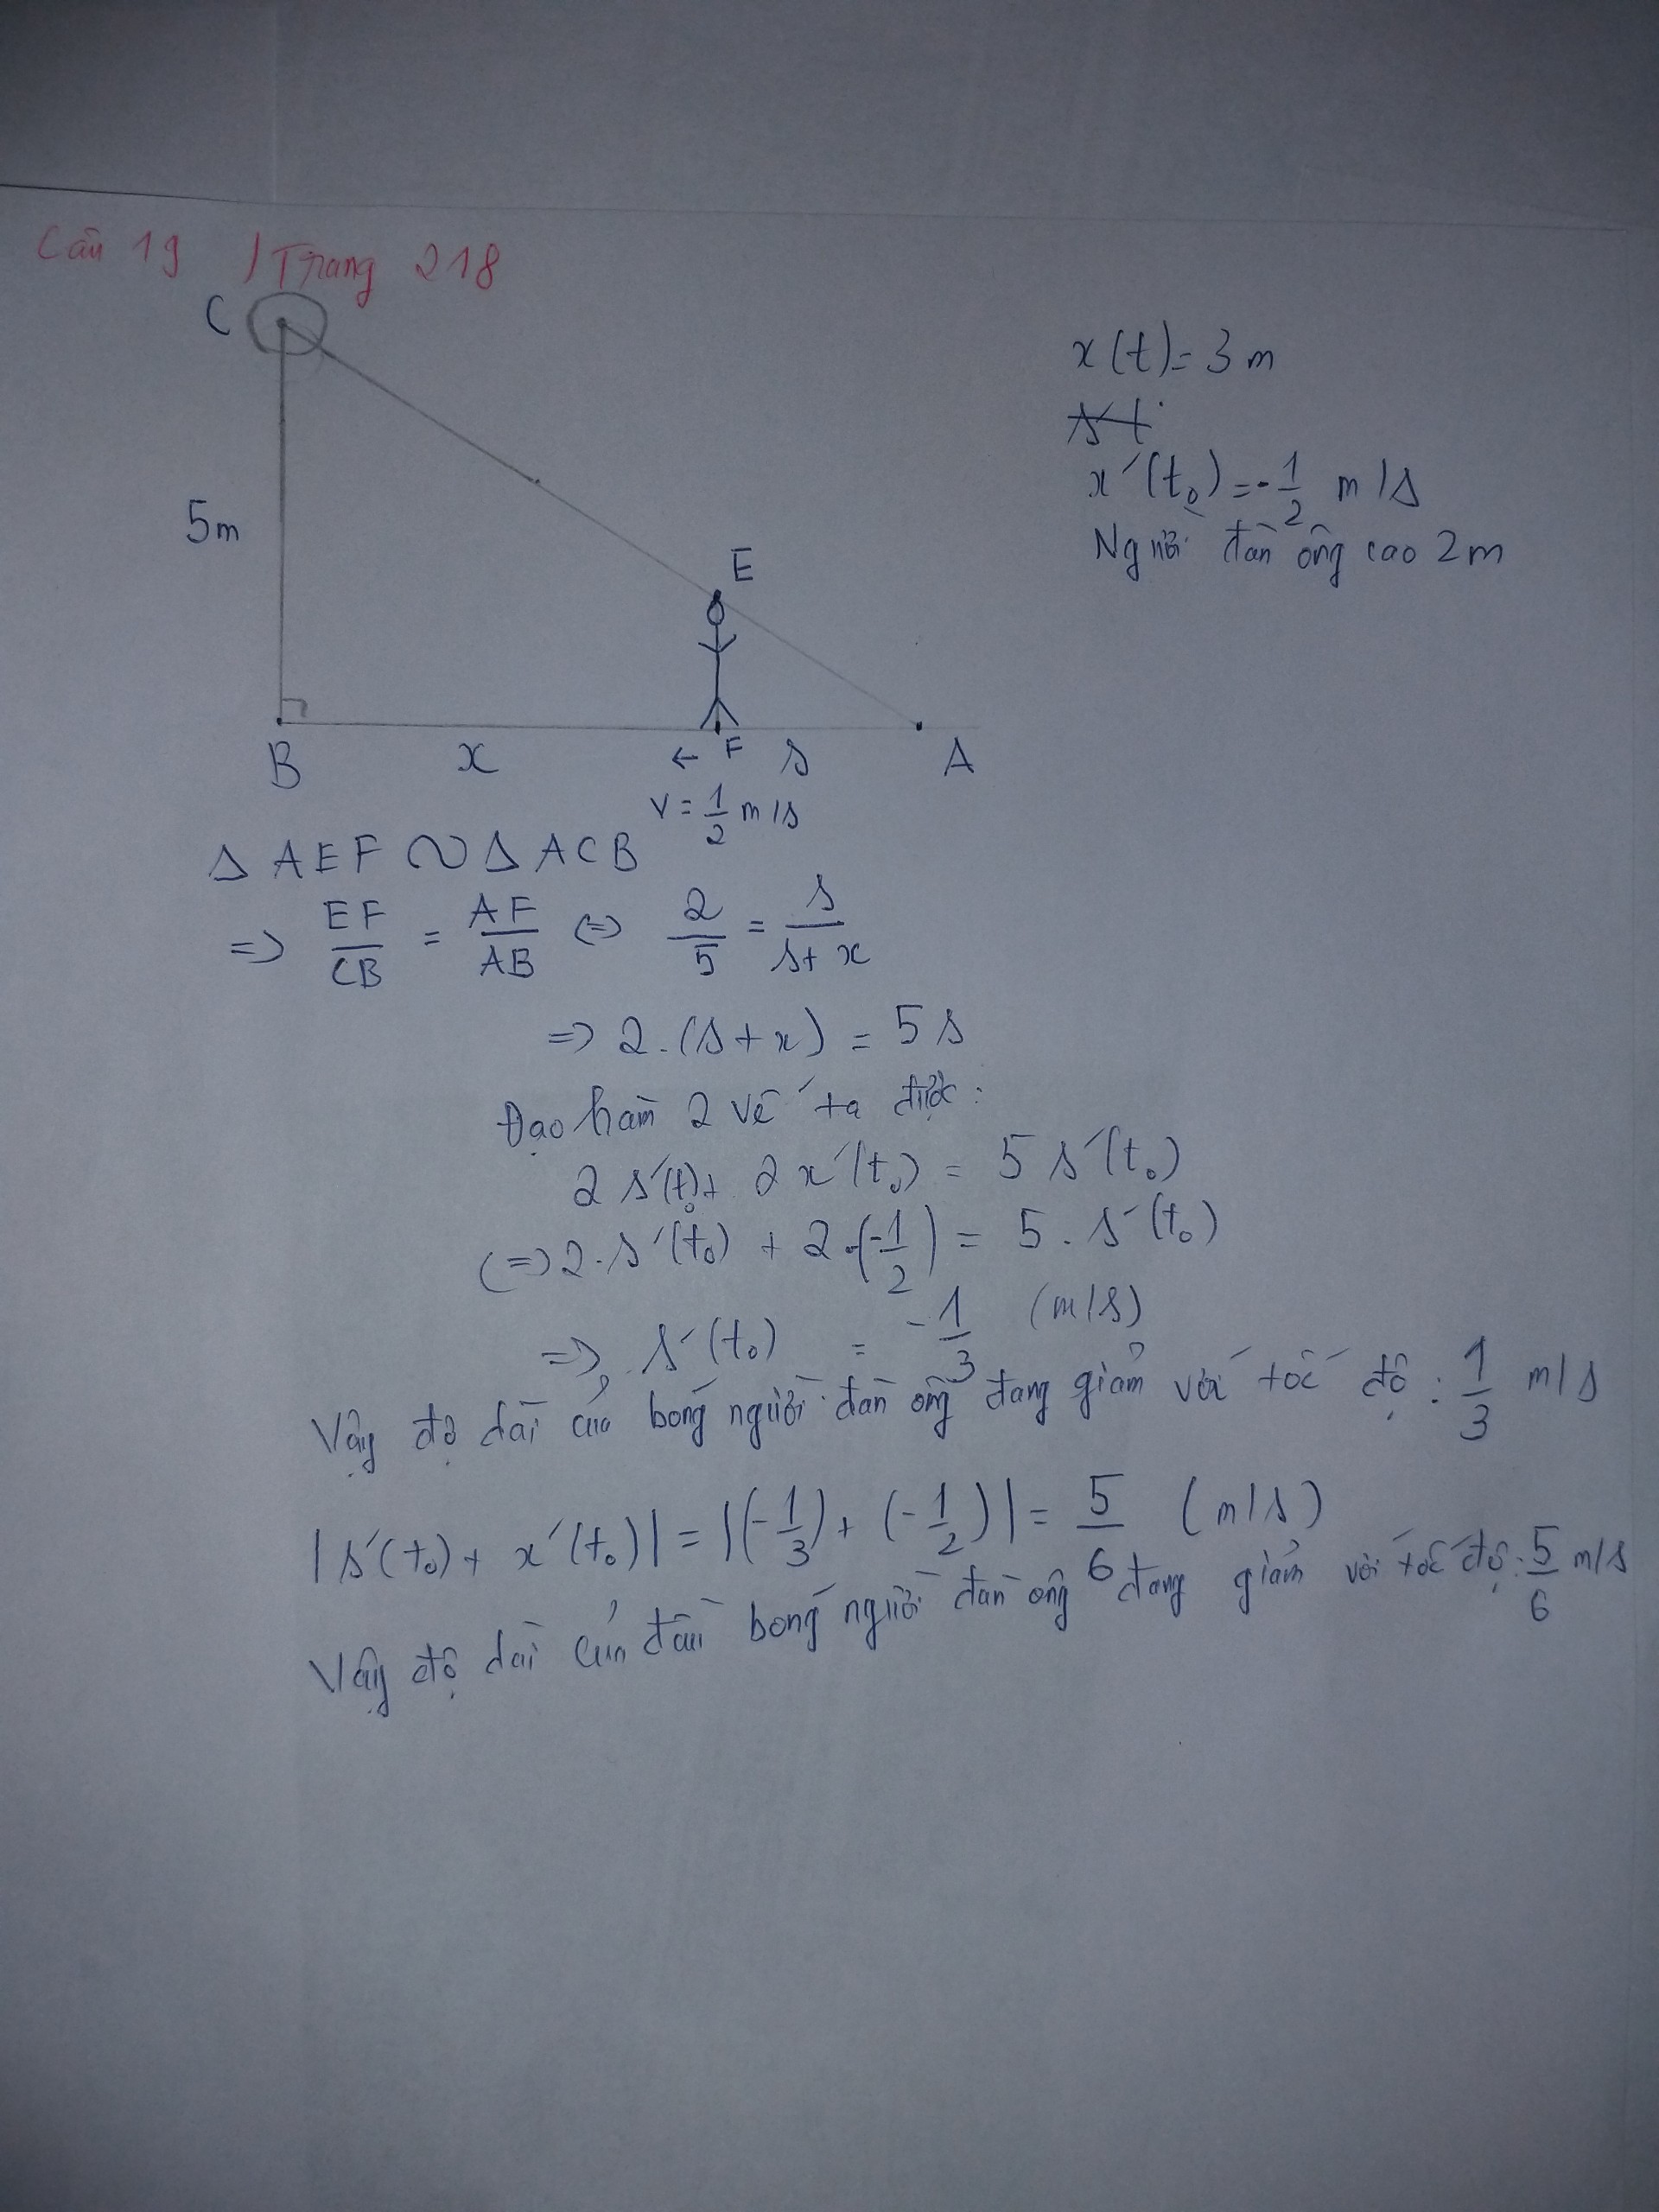 Câu 19 / Trang 218
C
x(t) = 3 m
x'(t₀) = -1/2 m/s
Người đàn ông cao 2m
5m
E
B x ← F s A
v = 1/2 m/s
Δ AEF ∽ Δ ACB
=> EF/CB = AF/AB <=> 2/5 = s/(s+x)
=> 2.(s+x) = 5s
Đạo hàm 2 vế ta được:
2 s'(t₀) + 2 x'(t₀) = 5 s'(t₀)
<=> 2.s'(t₀) + 2.(-1/2) = 5.s'(t₀)
=> s'(t₀) = -1/3 (m/s)
Vậy độ dài của bóng người đàn ông đang giảm với tốc độ: 1/3 m/s
|s'(t₀) + x'(t₀)| = |(-1/3) + (-1/2)| = 5/6 (m/s)
Vậy độ dài của đầu bóng người đàn ông đang giảm với tốc độ: 5/6 m/s